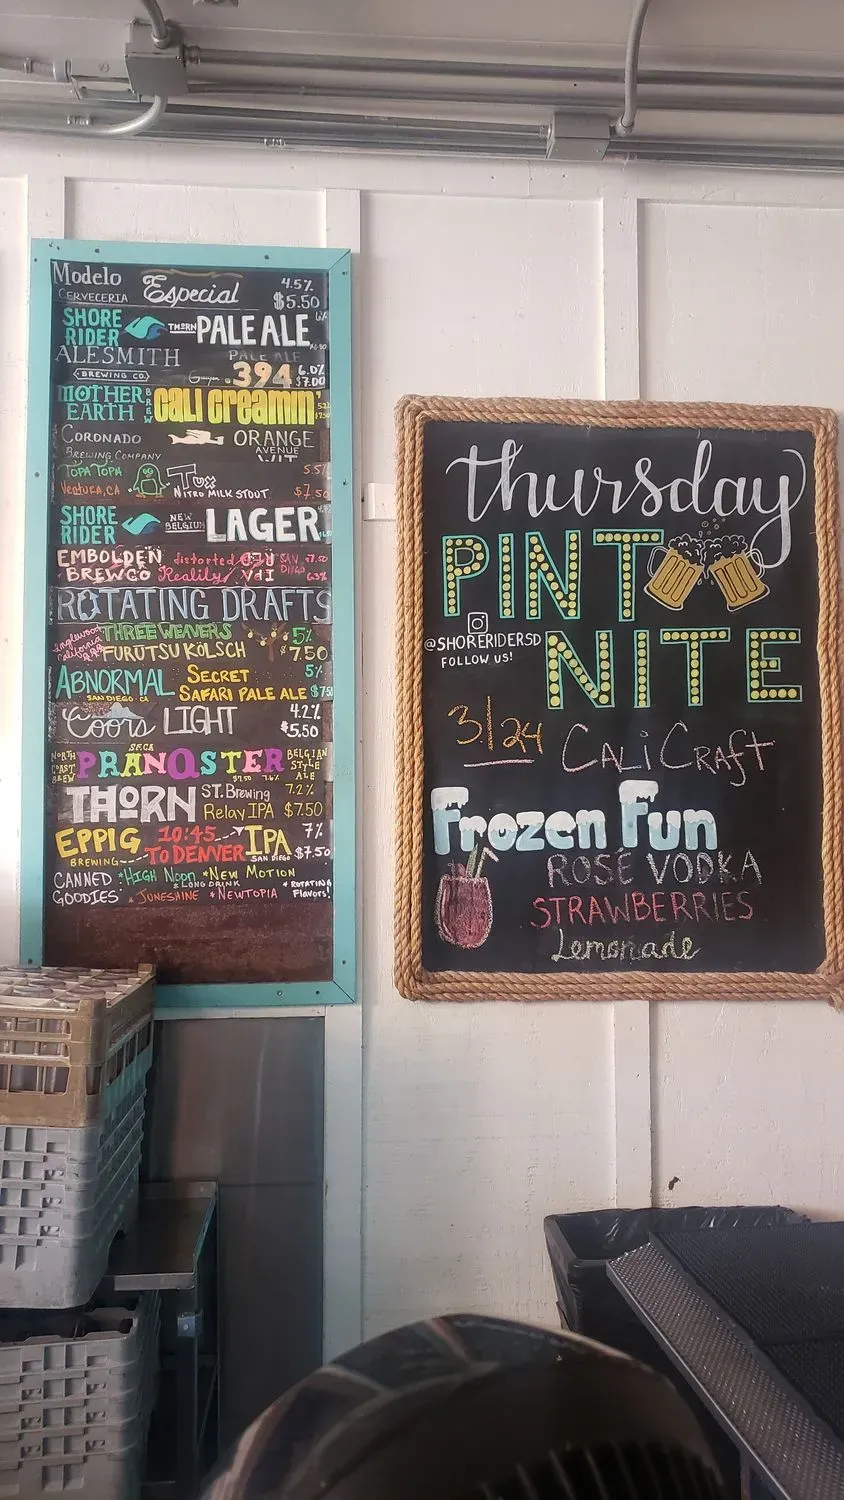 Modelo Especial 4.5%
CERVECERIA $5.50
SHORE RIDER THORN PALE ALE
ALESMITH PALE ALE
BREWING CO. .394 6.0% $7.00
MOTHER EARTH BREW CALI CREAMIN'
CORONADO ORANGE
BREWING COMPANY AVENUE
WIT
TOPA TOPA Tux 5.5%
VENTURA, CA NITRO MILK STOUT $7.50
SHORE RIDER NEW BELGIUM LAGER
EMBOLDEN distorted SAN DIEGO 7.50
BREWCO Reality IPA 6.3%
ROTATING DRAFTS
Inglewood California THREE WEAVERS 5%
FURUTSU KÖLSCH 7.50
ABNORMAL SECRET 5%
SAN DIEGO CA SAFARI PALE ALE
Coors LIGHT 4.2%
$5.50
SF, CA
NORTH COAST BREW PRANQSTER BELGIAN STYLE ALE
$7.50 7.6%
THORN ST. Brewing 7.2%
Relay IPA $7.50
EPPIG 10:45 IPA 7%
BREWING TO DENVER SAN DIEGO $7.50
CANNED *HIGH NOON *NEW MOTION
*LONG DRINK
GOODIES *JUNESHINE *NEWTOPIA *ROTATING Flavors!
thursday
PINT
@SHORERIDERSD
FOLLOW US!
NITE
3/24 CALICRAFT
Frozen Fun
ROSÉ VODKA
STRAWBERRIES
Lemonade